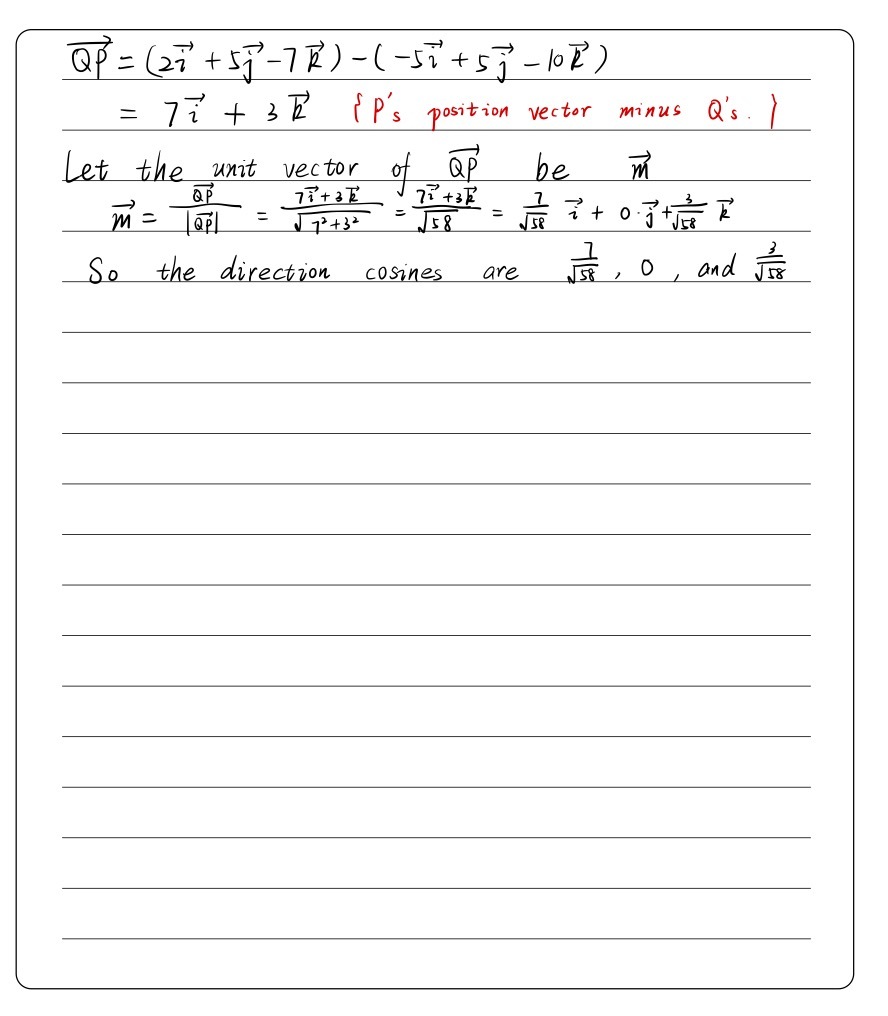 $\overrightarrow{QP} = (2\vec{i} + 5\vec{j} - 7\vec{k}) - (-5\vec{i} + 5\vec{j} - 10\vec{k})$
$= 7\vec{i} + 3\vec{k}$ {P's position vector minus Q's.}
Let the unit vector of $\overrightarrow{QP}$ be $\vec{m}$
$\vec{m} = \frac{\overrightarrow{QP}}{|\overrightarrow{QP}|} = \frac{7\vec{i} + 3\vec{k}}{\sqrt{7^2 + 3^2}} = \frac{7\vec{i} + 3\vec{k}}{\sqrt{58}} = \frac{7}{\sqrt{58}} \vec{i} + 0 \cdot \vec{j} + \frac{3}{\sqrt{58}} \vec{k}$
So the direction cosines are $\frac{7}{\sqrt{58}}$, 0, and $\frac{3}{\sqrt{58}}$